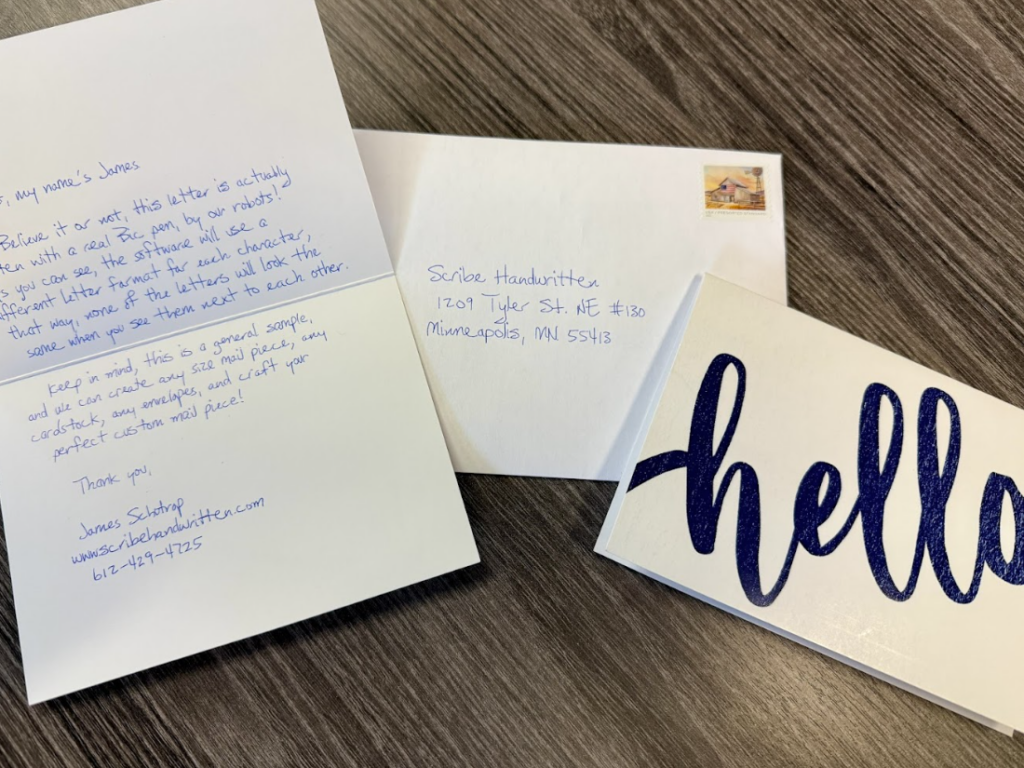 my name's James
Believe it or not, this letter is actually
with a real Bic pen, by our robots!
you can see, the software will use a
letter format for each character,
that way, none of the letters will look the
same when you see them next to each other.
Keep in mind, this is a general sample,
and we can create any size mail piece, any
cardstock, any envelopes, and craft your
perfect custom mail piece!
Thank you,
James Schotrop
www.scribehandwritten.com
612-429-4725
Scribe Handwritten
1209 Tyler St. NE #130
Minneapolis, MN 55413
hello